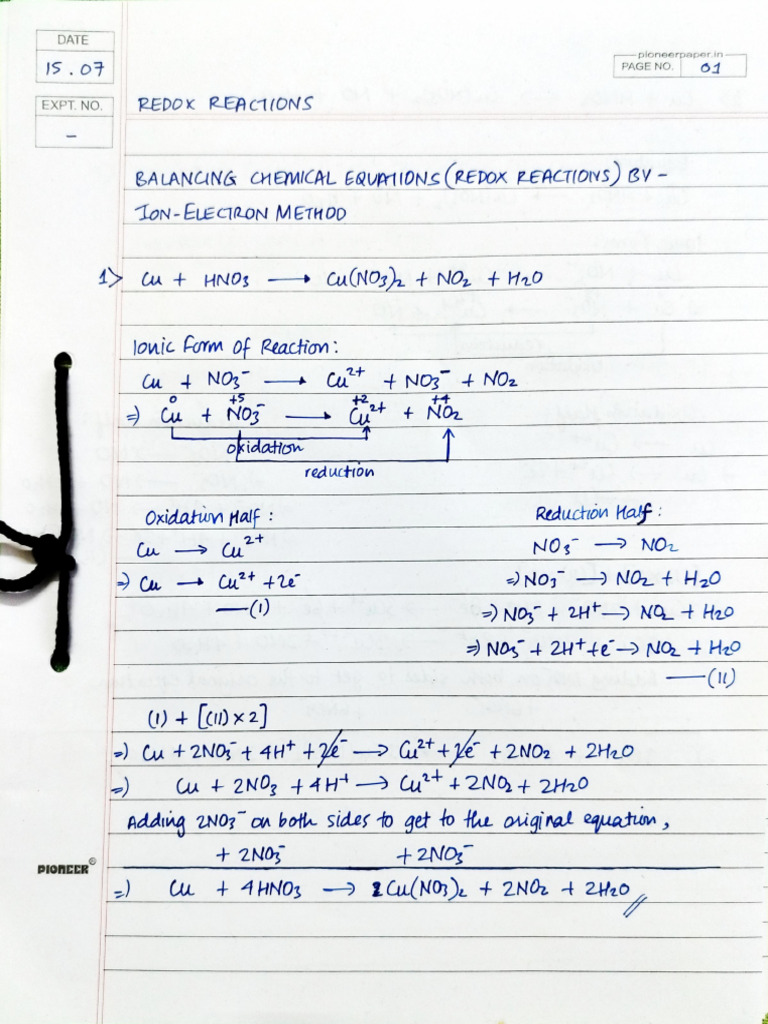 DATE
15.07
pioneerpaper.in
PAGE NO. 01
EXPT. NO.
-
REDOX REACTIONS
BALANCING CHEMICAL EQUATIONS (REDOX REACTIONS) BY -
ION-ELECTRON METHOD
1> Cu + HNO3 ⟶ Cu(NO3)2 + NO2 + H2O
Ionic Form of Reaction:
Cu + NO3⁻ ⟶ Cu²⁺ + NO3⁻ + NO2
0 +5 +2 +4
⇒ Cu + NO3⁻ ⟶ Cu²⁺ + NO2
oxidation
reduction
Oxidation Half :
Cu ⟶ Cu²⁺
⇒ Cu ⟶ Cu²⁺ + 2e⁻
—(I)
Reduction Half :
NO3⁻ ⟶ NO2
⇒ NO3⁻ ⟶ NO2 + H2O
⇒ NO3⁻ + 2H⁺ ⟶ NO2 + H2O
⇒ NO3⁻ + 2H⁺ + e⁻ ⟶ NO2 + H2O
—(II)
(I) + [(II) × 2]
⇒ Cu + 2NO3⁻ + 4H⁺ + 2e⁻ ⟶ Cu²⁺ + 2e⁻ + 2NO2 + 2H2O
⇒ Cu + 2NO3 + 4H⁺ ⟶ Cu²⁺ + 2NO2 + 2H2O
Adding 2NO3⁻ on both sides to get to the original equation,
+ 2NO3⁻ + 2NO3⁻
PIONEER®
⇒ Cu + 4HNO3 ⟶ Cu(NO3)2 + 2NO2 + 2H2O //